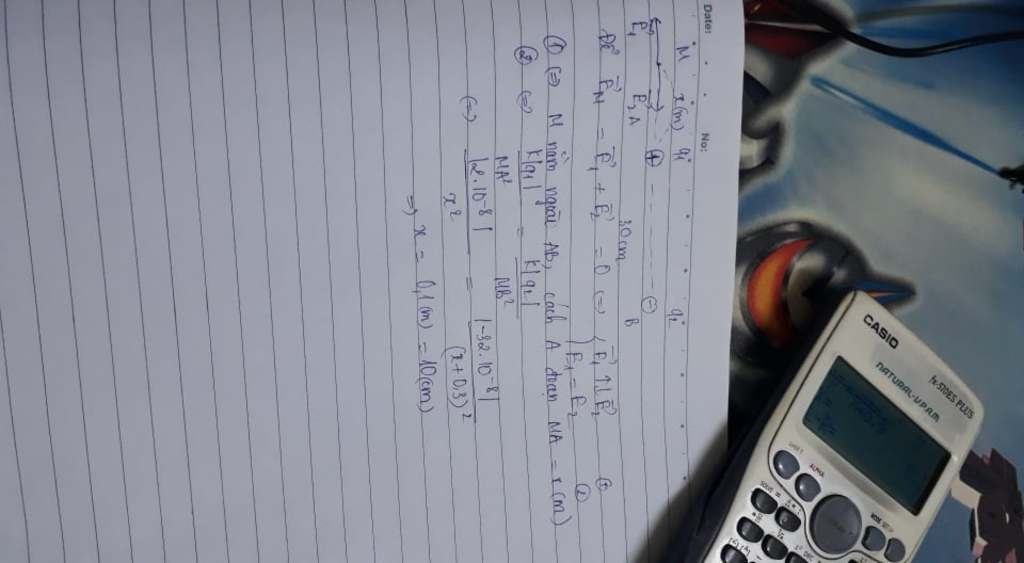 Date: No:
M x(m) q₁ q₂
E₁ E₂ A ⊕ ⊖ B
30 cm
Để E⃗M = E⃗₁ + E⃗₂ = 0 (=) { E⃗₁ ↑↓ E⃗₂ ①
E₁ = E₂ ②
① (=) M nằm ngoài AB, cách A đoạn MA = x (m)
② (=) k|q₁| / MA² = k|q₂| / MB²
(=) |2.10⁻⁸| / x² = |-32.10⁻⁸| / (x+0,3)²
=> x = 0,1 (m) = 10 (cm)
CASIO
fx-570ES PLUS
NATURAL-V.P.A.M.
SHIFT
ALPHA
MODE SETUP
SOLVE =